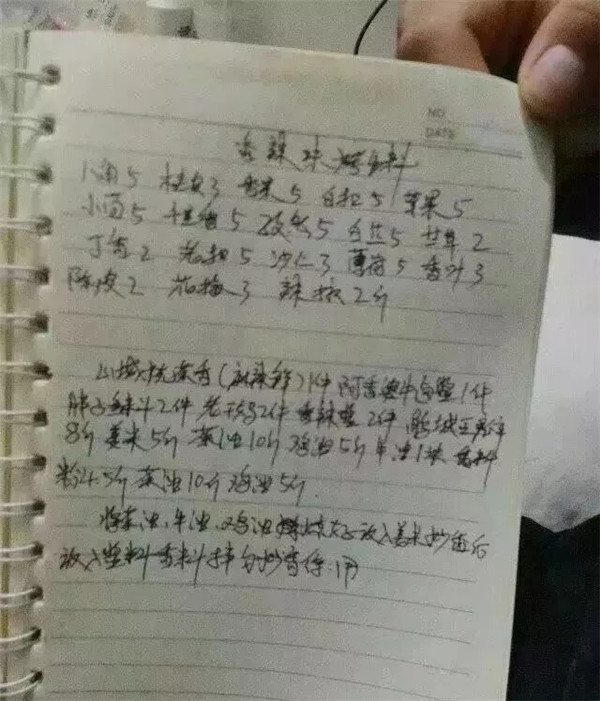 NO.
DATE
香辣味烤鱼料
八角5 桂皮3 香果5 白扣5 草果5
小茴5 千里香5 5 白芷5 甘草2
丁香2 老扣5 沙仁3 薄荷5 香叶3
陈皮2 3 辣椒2斤
(麻辣鲜)1件 阿香婆牛 酱1件
胖子鱼料2件 老干妈2件 香辣酱2件
8斤 姜米5斤 菜油10斤 鸡油5斤 牛油1块 香料
粉2.5斤 菜油10斤 鸡油5斤
将菜油、牛油、鸡油 放入姜米炒香后
放入酱料香料拌匀炒香待用